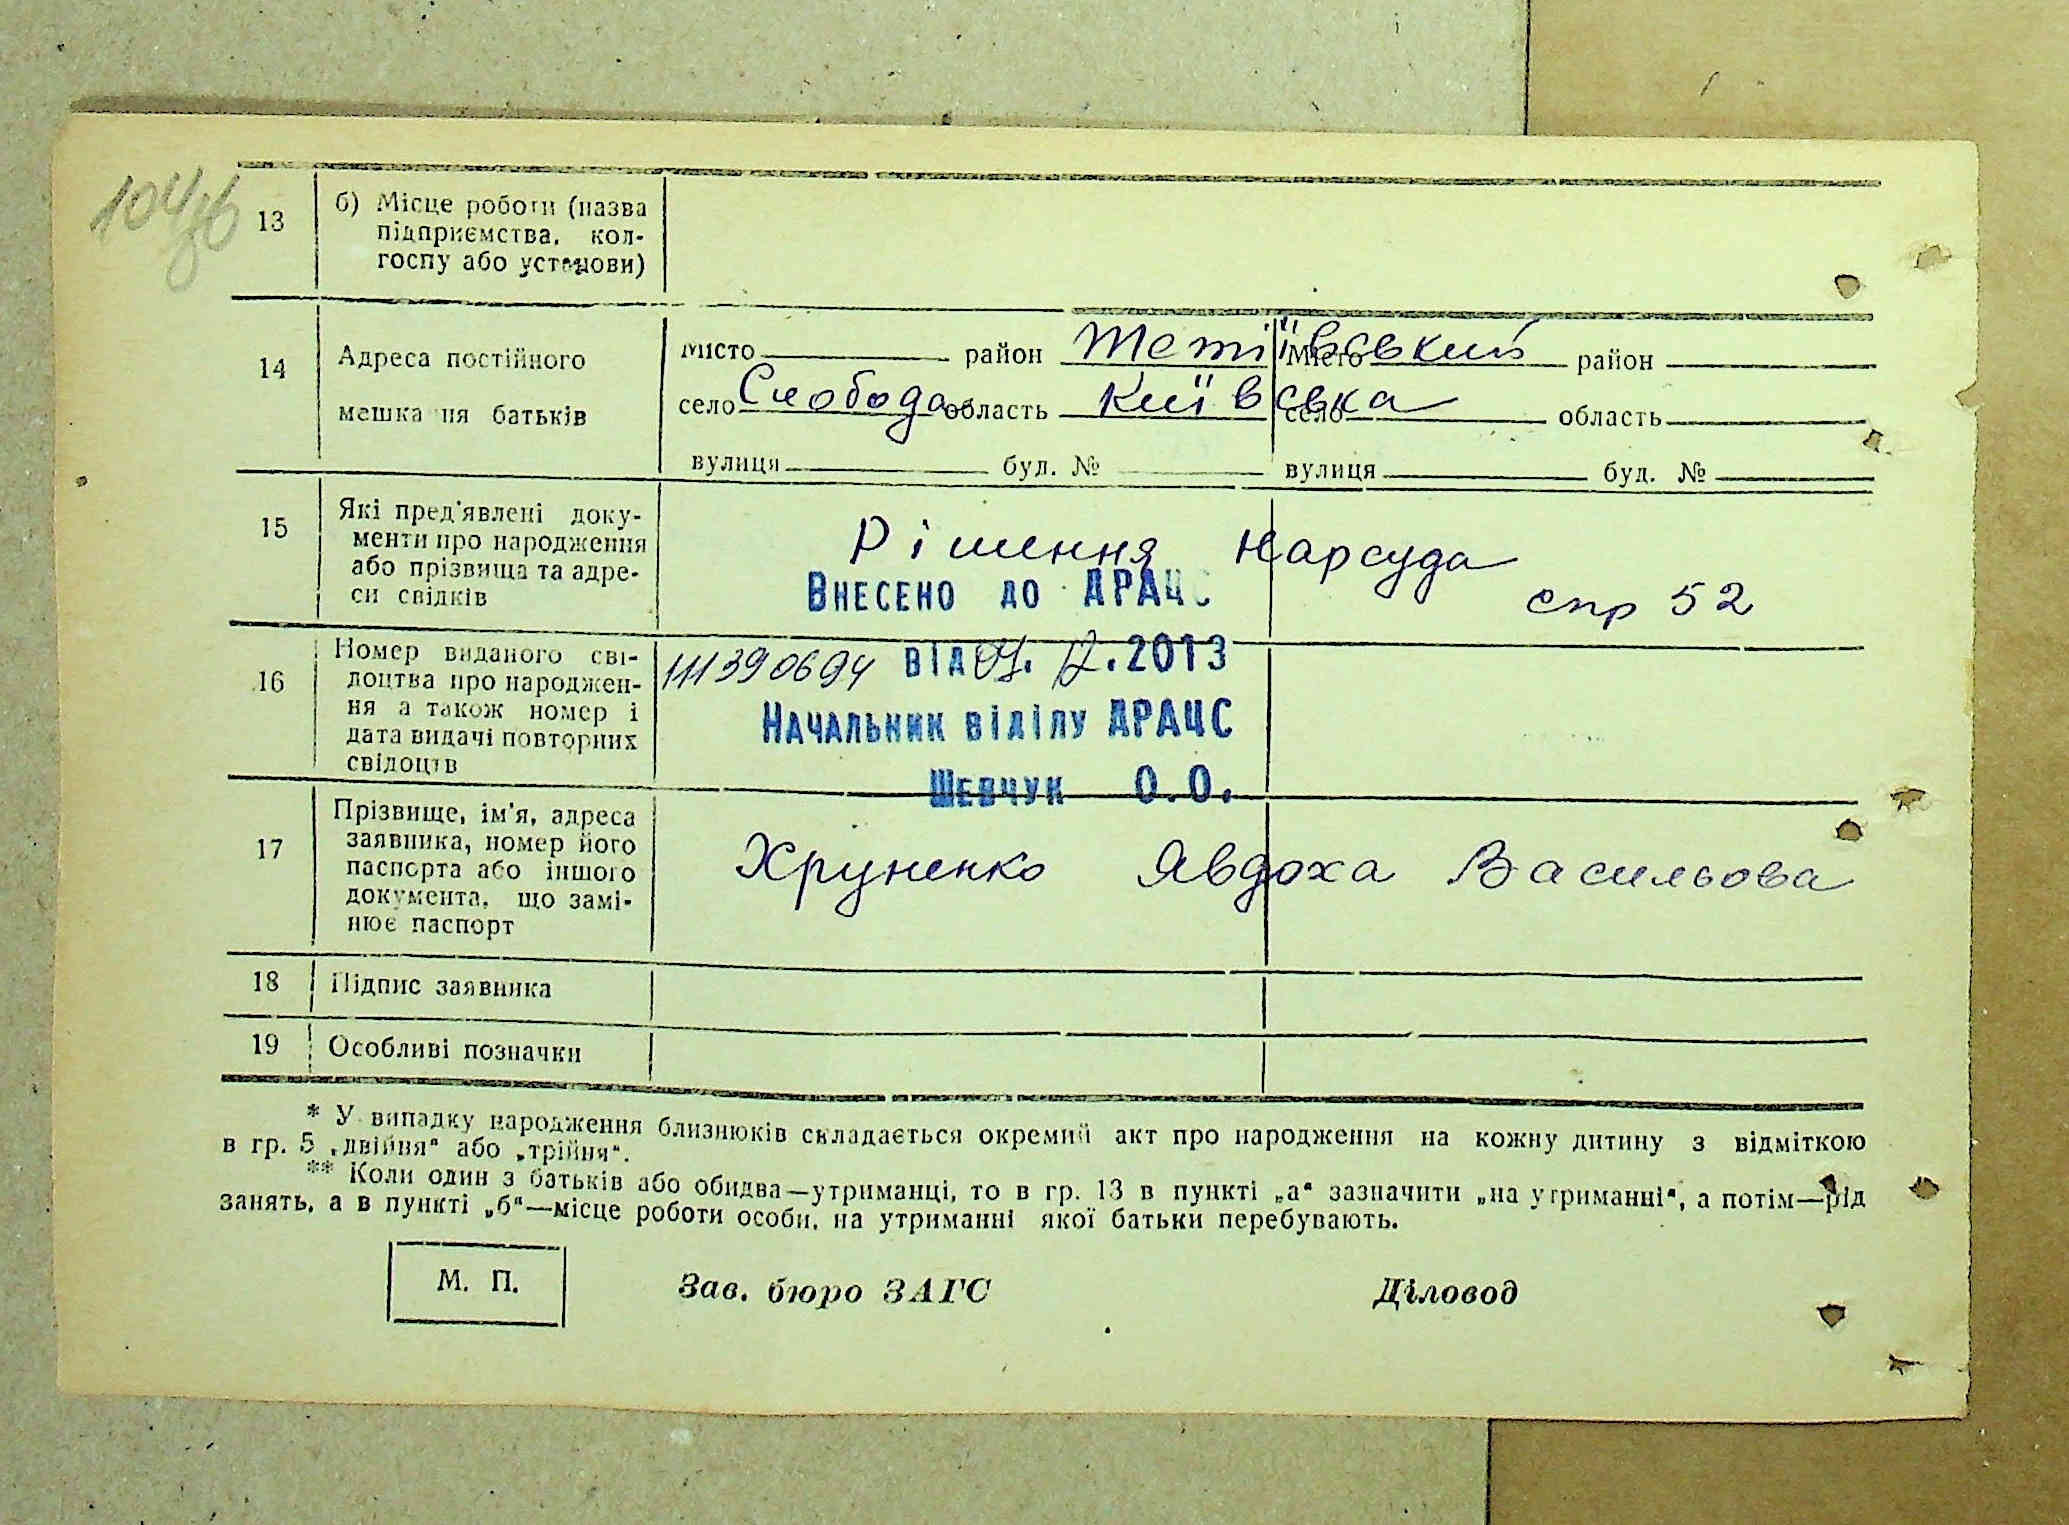 104зв
13 б) Місце роботи (назва
підприємства, кол-
госпу або установи)
14 Адреса постійного
мешкання батьків
місто район Тетіївський місто район
село Слобода область Київська село область
вулиця буд. № вулиця буд. №
15 Які пред'явлені доку-
менти про народження
або прізвища та адре-
си свідків
Рішення Нарсуда
спр 52
Внесено до ДРАЦС
16 Номер виданого сві-
доцтва про народжен-
ня а також номер і
дата видачі повторних
свідоцтв
111390694 від 12.2013
Начальник відділу ДРАЦС
Шевчук О.О.
17 Прізвище, ім'я, адреса
заявника, номер його
паспорта або іншого
документа, що замі-
нює паспорт
Хруненко Явдоха Васильова
18 Підпис заявника
19 Особливі позначки
* У випадку народження близнюків складається окремий акт про народження на кожну дитину з відміткою
в гр. 5 „двійня“ або „трійня“.
** Коли один з батьків або обидва—утриманці, то в гр. 13 в пункті „а“ зазначити „на утриманні“, а потім—рід
занять, а в пункті „б“—місце роботи особи, на утриманні якої батьки перебувають.
М. П. Зав. бюро ЗАГС Діловод